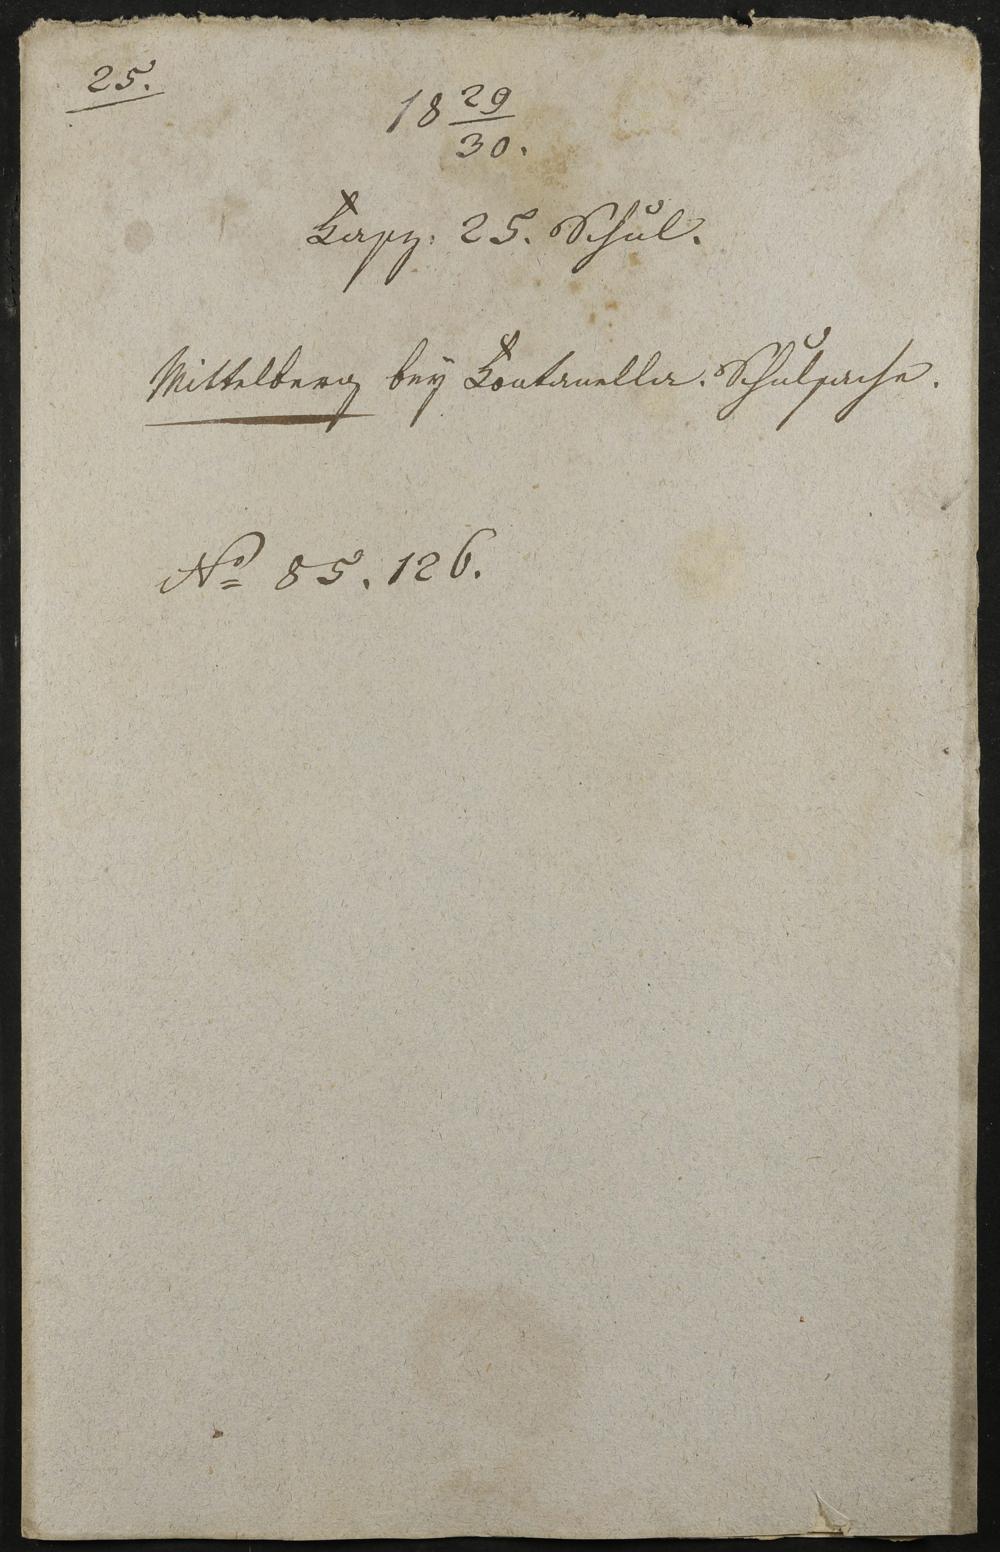 25.
18 29/30.
Fasz: 25. Schul.
Mittelberg beÿ Fontanella. Schulsache.
No 85. 126.